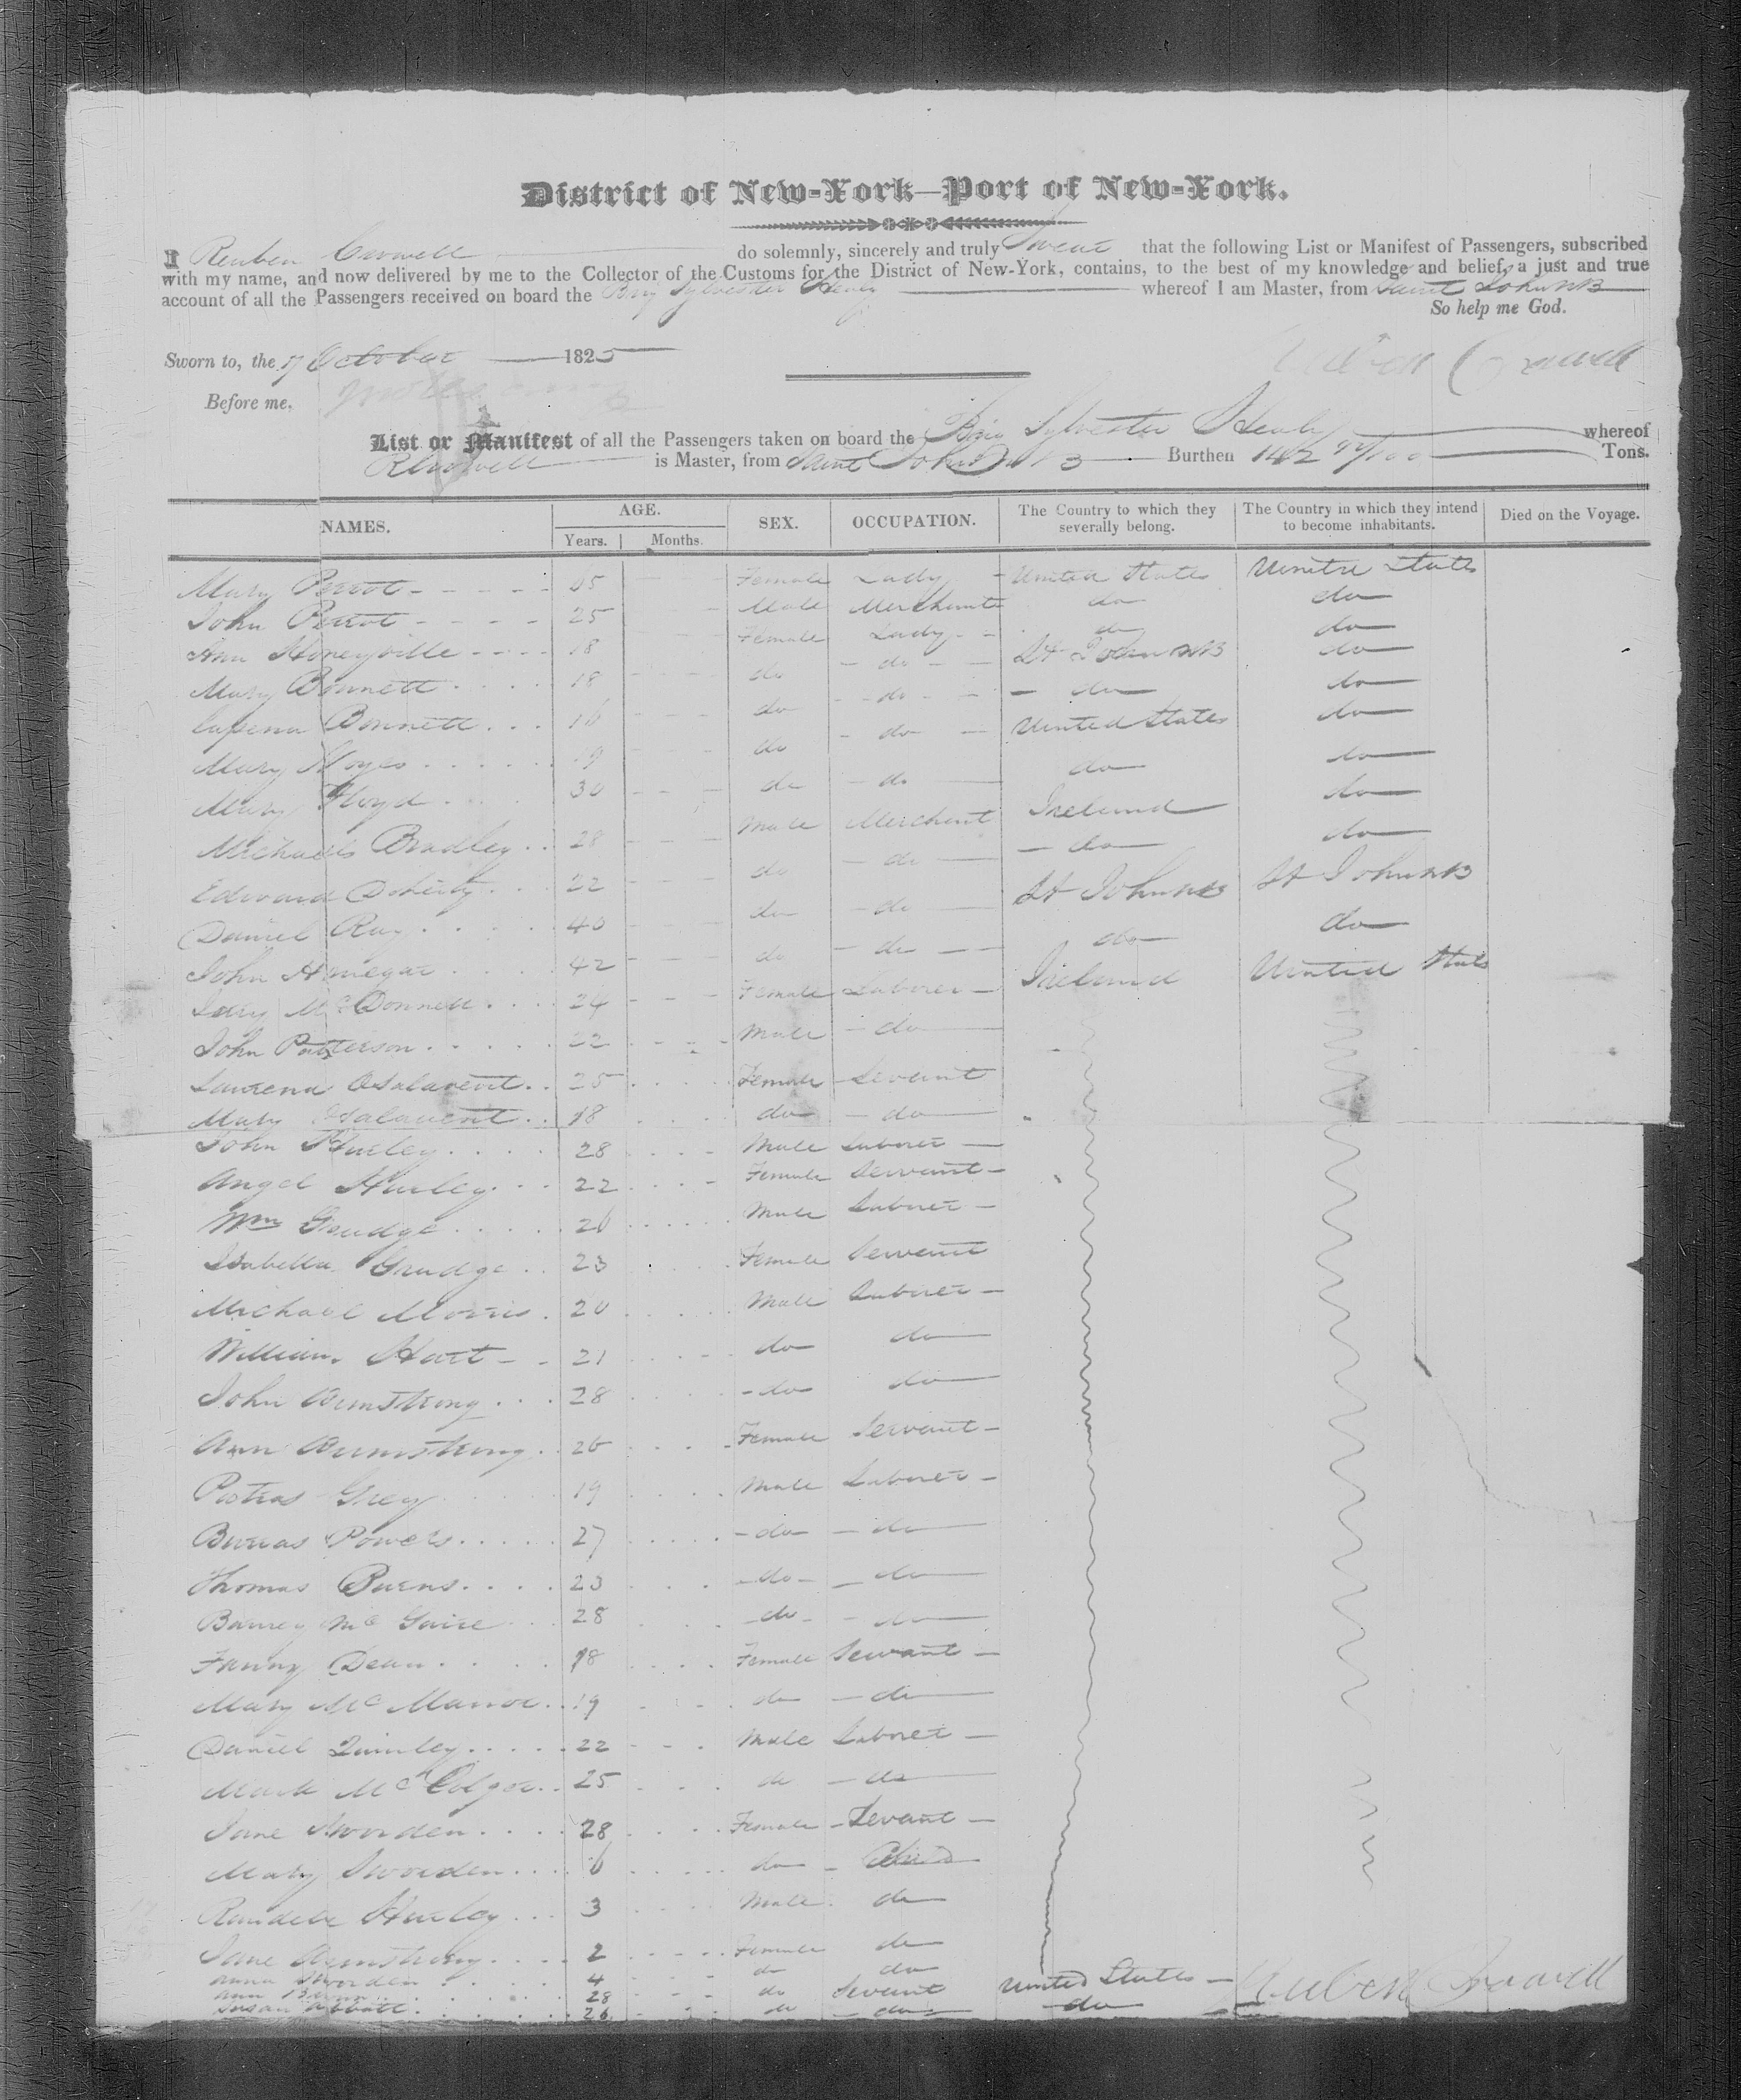 District of New-York—Port of New-York.
I Reuben Crowell do solemnly, sincerely and truly Swear that the following List or Manifest of Passengers, subscribed
with my name, and now delivered by me to the Collector of the Customs for the District of New-York, contains, to the best of my knowledge and belief, a just and true
account of all the Passengers received on board the Brig Sylvester Healy whereof I am Master, from Saint John NB
So help me God.
Sworn to, the 17 October 1825
Reuben Crowell
Before me,
List or Manifest of all the Passengers taken on board the Brig Sylvester Healy whereof
R Crowell is Master, from Saint John NB Burthen 142 Tons.
NAMES. AGE. Years. Months. SEX. OCCUPATION. The Country to which they severally belong. The Country in which they intend to become inhabitants. Died on the Voyage.
Mary Female Lady United States United States
John 25 Male Merchant do do
Ann Honeyville 18 Female Lady do do
Mary Bonnett 18 do do St John NB do
Bonnett 16 do do do do
Mary Noyes 19 do do United States do
Mary Floyd 30 do do do do
Michael Bradley 28 Male Merchant Ireland do
Edward Doherty 22 do do do do
Daniel Ray 40 do do St John NB St John NB
John 42 do do do do
McDonnell 24 Female Laborer Ireland United States
John Patterson 22 Male do
25 Female Servant
Mary 18 do do
John Hurley 28 Male Laborer
Angel Hurley 22 Female Servant
Wm Grudge 26 Male Laborer
Isabella Grudge 23 Female Servant
Michael Morris 20 Male Laborer
William Hart 21 do do
John Armstrong 28 do do
Ann Armstrong 26 Female Servant
Grey 19 Male Laborer
Powers 27 do do
Thomas Burns 23 do do
Barney McGuire 28 do do
Fanny Dean 18 Female Servant
Mary Mc 19 do do
Daniel Quinley 22 Male Laborer
Mark McColgan 25 do do
Jane Sworden 28 Female Servant
Mary Sworden 6 do Child
Hurley 3 Male do
Jane Armstrong 2 Female do
Anna Sworden 4 do do
Ann 28 do Servant United States
Susan Abbott 26 do do do
Reuben Crowell